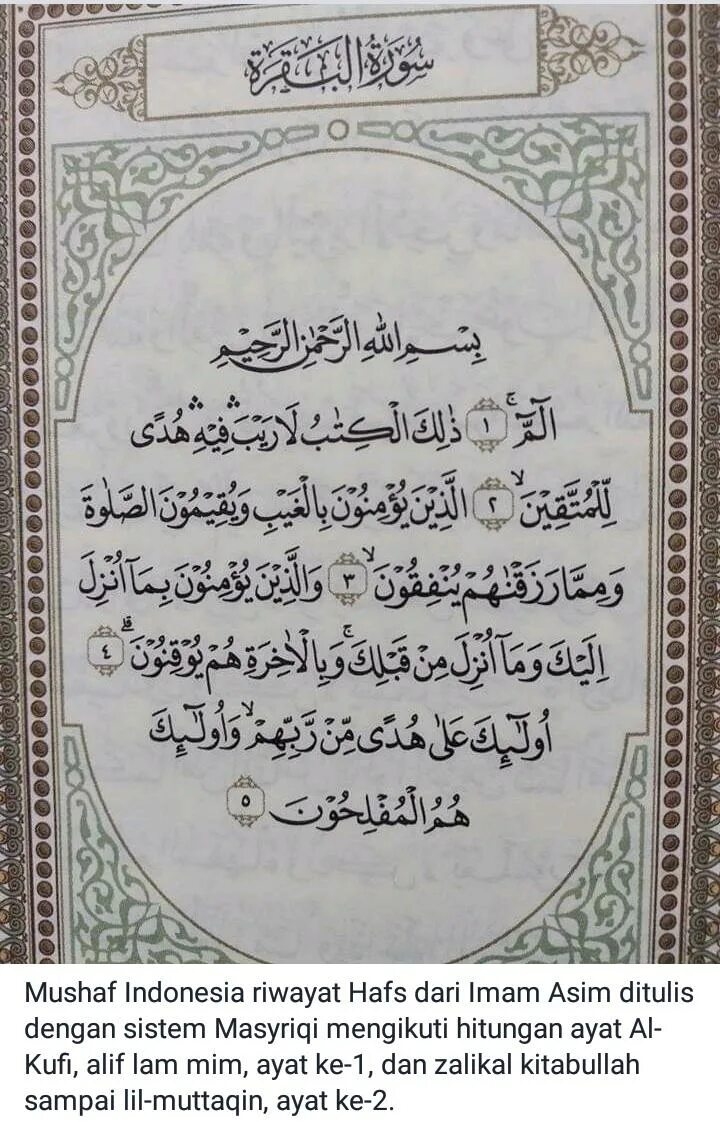 سُوْرَةُ الْبَقَرَةِ
بِسْمِ اللّٰهِ الرَّحْمٰنِ الرَّحِيْمِ
الٓمّٓ ۚ ١ ذٰلِكَ الْكِتٰبُ لَا رَيْبَ ۛ فِيْهِ ۛ هُدًى
لِّلْمُتَّقِيْنَ ۙ ٢ الَّذِيْنَ يُؤْمِنُوْنَ بِالْغَيْبِ وَيُقِيْمُوْنَ الصَّلٰوةَ
وَمِمَّا رَزَقْنٰهُمْ يُنْفِقُوْنَ ۙ ٣ وَالَّذِيْنَ يُؤْمِنُوْنَ بِمَآ اُنْزِلَ
اِلَيْكَ وَمَآ اُنْزِلَ مِنْ قَبْلِكَ ۚ وَبِالْاٰخِرَةِ هُمْ يُوْقِنُوْنَ ۗ ٤
اُولٰۤىِٕكَ عَلٰى هُدًى مِّنْ رَّبِّهِمْ ۙ وَاُولٰۤىِٕكَ
هُمُ الْمُفْلِحُوْنَ ٥
Mushaf Indonesia riwayat Hafs dari Imam Asim ditulis
dengan sistem Masyriqi mengikuti hitungan ayat Al-
Kufi, alif lam mim, ayat ke-1, dan zalikal kitabullah
sampai lil-muttaqin, ayat ke-2.